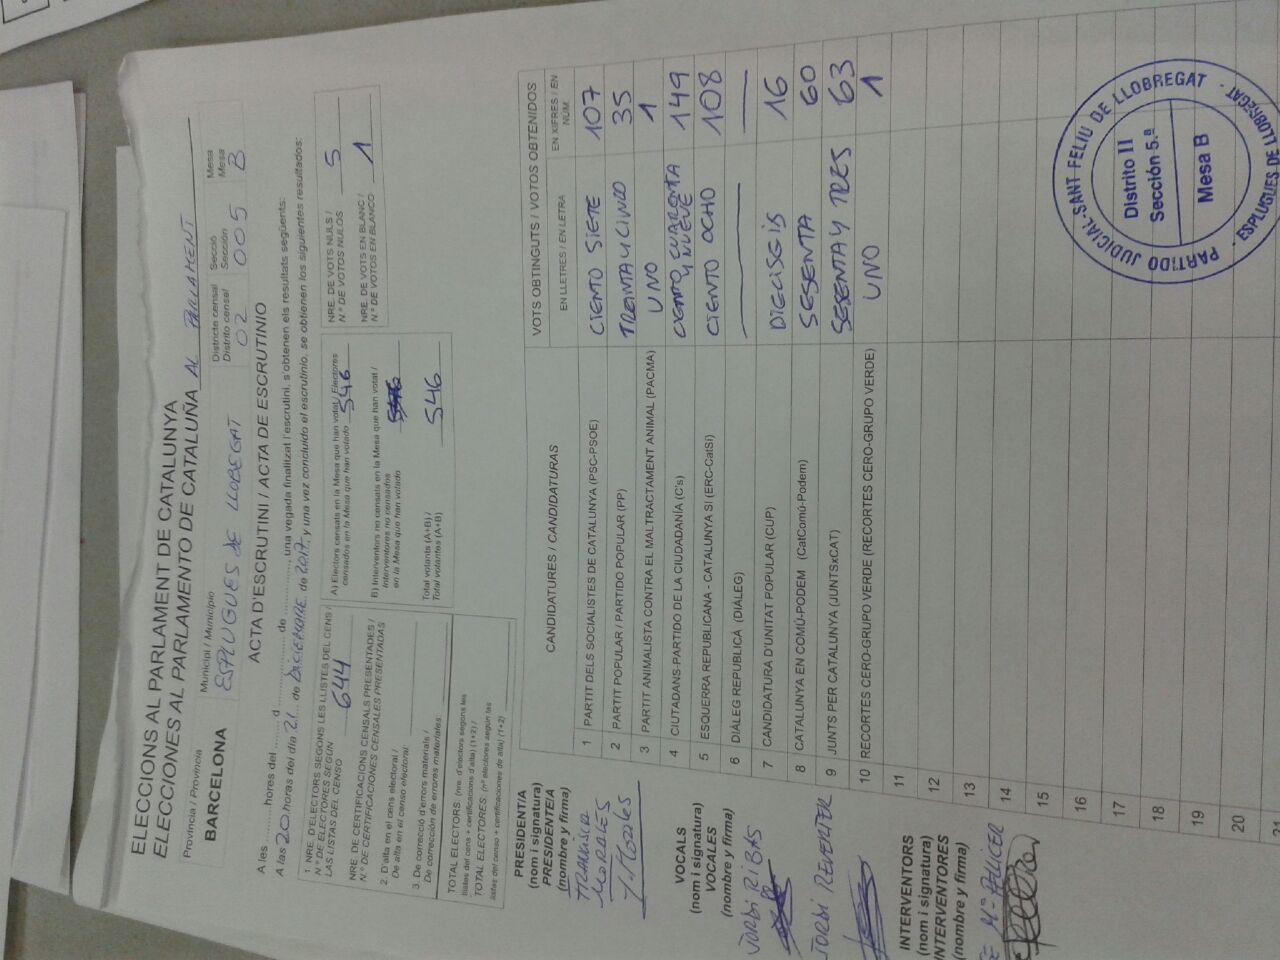 ELECCIONS AL PARLAMENT DE CATALUNYA
ELECCIONES AL PARLAMENTO DE CATALUÑA AL PARLAMENT
Província / Provincia
BARCELONA
Municipi / Municipio
ESPLUGUES de LLOBREGAT
Districte censal
Distrito censal
02
Secció
Sección
005
Mesa
Mesa
B
ACTA D'ESCRUTINI / ACTA DE ESCRUTINIO
A les ............ hores del ........ d ........................ de ............, una vegada finalitzat l'escrutini, s'obtenen els resultats següents:
A las 20 horas del día 21 de DICIEMBRE de 2017, y una vez concluido el escrutinio, se obtienen los siguientes resultados:
1. NRE. D'ELECTORS SEGONS LES LLISTES DEL CENS /
N.º DE ELECTORES SEGÚN
LAS LISTAS DEL CENSO 644
NRE. DE CERTIFICACIONS CENSALS PRESENTADES /
N.º DE CERTIFICACIONES CENSALES PRESENTADAS
2. D'alta en el cens electoral /
De alta en el censo electoral:
3. De correcció d'errors materials /
De corrección de errores materiales:
TOTAL ELECTORS: (nre. d'electors segons les
llistes del cens + certificacions d'alta) (1+2) /
TOTAL ELECTORES: (nº electores según las
listas del censo + certificaciones de alta) (1+2)
A) Electors censats en la Mesa que han votat / Electores
censados en la Mesa que han votado 546
B) Interventors no censats en la Mesa que han votat /
Interventores no censados
en la Mesa que han votado
Total votants (A+B) /
Total votantes (A+B) 546
NRE. DE VOTS NULS /
N.º DE VOTOS NULOS 5
NRE. DE VOTS EN BLANC /
N.º DE VOTOS EN BLANCO 1
CANDIDATURES / CANDIDATURAS
VOTS OBTINGUTS / VOTOS OBTENIDOS
EN LLETRES / EN LETRA
EN XIFRES / EN NÚM.
1 PARTIT DELS SOCIALISTES DE CATALUNYA (PSC-PSOE) CIENTO SIETE 107
2 PARTIT POPULAR / PARTIDO POPULAR (PP) TREINTA Y CINCO 35
3 PARTIT ANIMALISTA CONTRA EL MALTRACTAMENT ANIMAL (PACMA) UNO 1
4 CIUTADANS-PARTIDO DE LA CIUDADANÍA (C's) CIENTO CUARENTA Y NUEVE 149
5 ESQUERRA REPUBLICANA - CATALUNYA SÍ (ERC-CatSí) CIENTO OCHO 108
6 DIÀLEG REPUBLICÀ (DIÀLEG)
7 CANDIDATURA D'UNITAT POPULAR (CUP) DIECISEIS 16
8 CATALUNYA EN COMÚ-PODEM (CatComú-Podem) SESENTA 60
9 JUNTS PER CATALUNYA (JUNTSxCAT) SESENTA Y TRES 63
10 RECORTES CERO-GRUPO VERDE (RECORTES CERO-GRUPO VERDE) UNO 1
11
12
13
14
15
16
17
18
19
20
21
PRESIDENT/A
(nom i signatura)
PRESIDENTE/A
(nombre y firma)
MORALES
VOCALS
(nom i signatura)
VOCALES
(nombre y firma)
JORDI RIBAS
JORDI REVERTER
INTERVENTORS
(nom i signatura)
INTERVENTORES
(nombre y firma)
Mª PELLICER
PARTIDO JUDICIAL-SANT FELIU DE LLOBREGAT
Distrito II
Sección 5.ª
Mesa B
ESPLUGUES DE LLOBREGAT